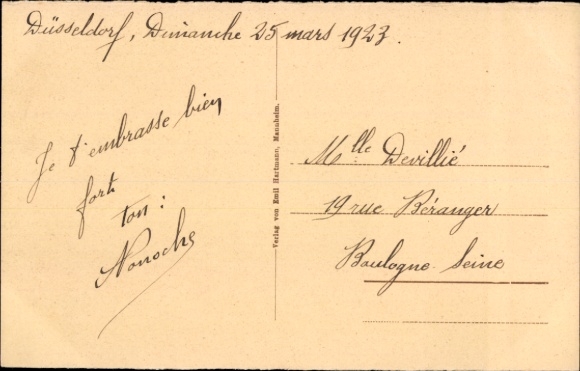 Düsseldorf, Dimanche 25 mars 1923.
Je t'embrasse bien
fort
ton :
Nonoche
Verlag von Emil Hartmann, Mannheim.
Mlle Devillié
19 rue Béranger
Boulogne-Seine